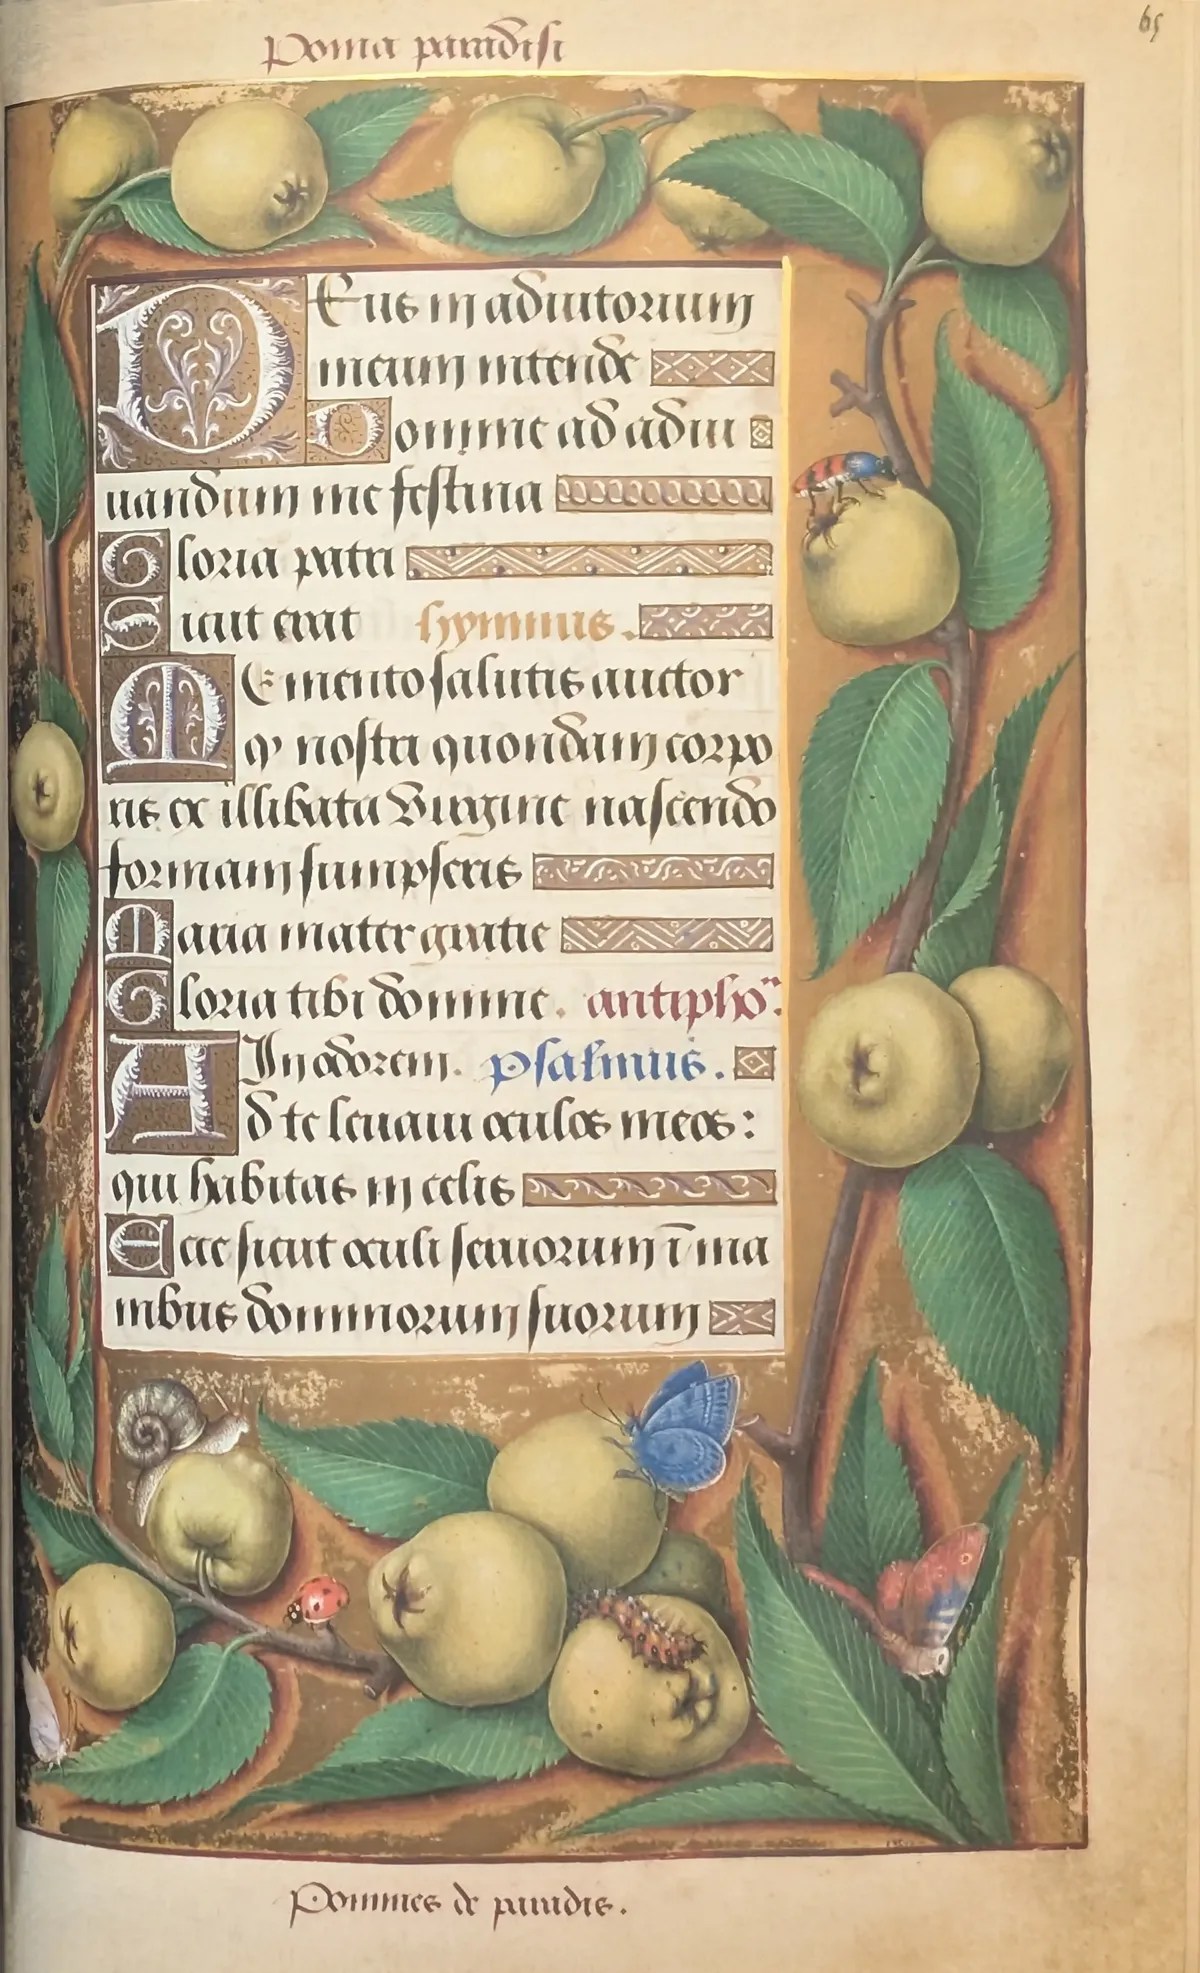 65
Poma paradisi
DEus in adiutorium
meum intende
Domine ad adiu
uandum me festina
Gloria patri
Sicut erat hymnus.
MEmento salutis auctor
qꝫ nostri quondam corpo
ris ex illibata Virgine nascendo
formam sumpseris
Maria mater gratie
Gloria tibi domine. antipho.
In odorem. psalmus.
Ad te leuaui oculos meos:
qui habitas in celis
Ecce sicut oculi seruorum ī ma
nibus dominorum suorum
Pommes de paradis.